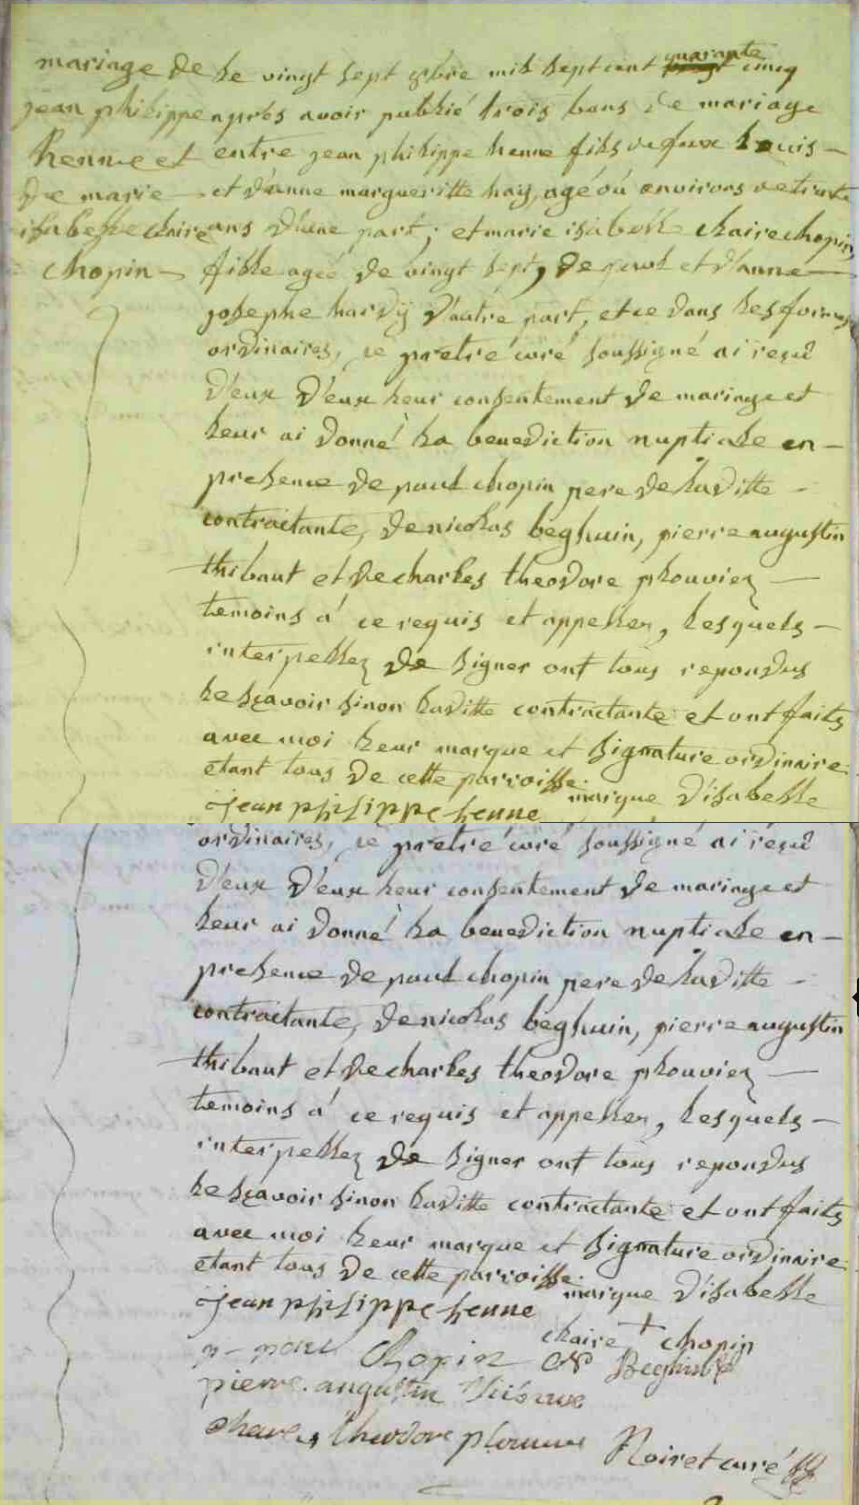 mariage de
jean philippe
henne et
de marie
isabelle claire
chopin
Le vingt sept 9bre mil sept cent quarante cinq
après avoir publié trois bans de mariage
entre jean philippe henne fils de feux Louis
et d'anne margueritte hay, agé oú environs de trente
ans d'une part; et marie isabelle claire chopin
fille ageé de vingt sept, de paul et d'anne
josephe hardÿ d'autre part, et ce dans les formes
ordinaires, je prétre curé soussigné ai reçu
d'eux d'eux leur consentement de mariage et
leur ai donné la benediction nuptiale en
presence de paul chopin pere de laditte
contractante, de nicolas beghuin, pierre augustin
thibaut et de charles theodore plouviez
temoins á ce requis et appellez, lesquels
interpellez de signer ont tous repondus
le sçavoir sinon laditte contractante et ont faits
avec moi leur marque et signature ordinaire
etant tous de cette parroisse.
jean philippe henne marque d'isabelle
ordinaires, je prétre curé soussigné ai reçu
d'eux d'eux leur consentement de mariage et
leur ai donné la benediction nuptiale en
presence de paul chopin pere de laditte
contractante, de nicolas beghuin, pierre augustin
thibaut et de charles theodore plouviez
temoins á ce requis et appellez, lesquels
interpellez de signer ont tous repondus
le sçavoir sinon laditte contractante et ont faits
avec moi leur marque et signature ordinaire
etant tous de cette parroisse.
jean philippe henne marque d'isabelle
claire + chopin
Chopin Beghin
pierre. augustin
theodore
Noiret curé